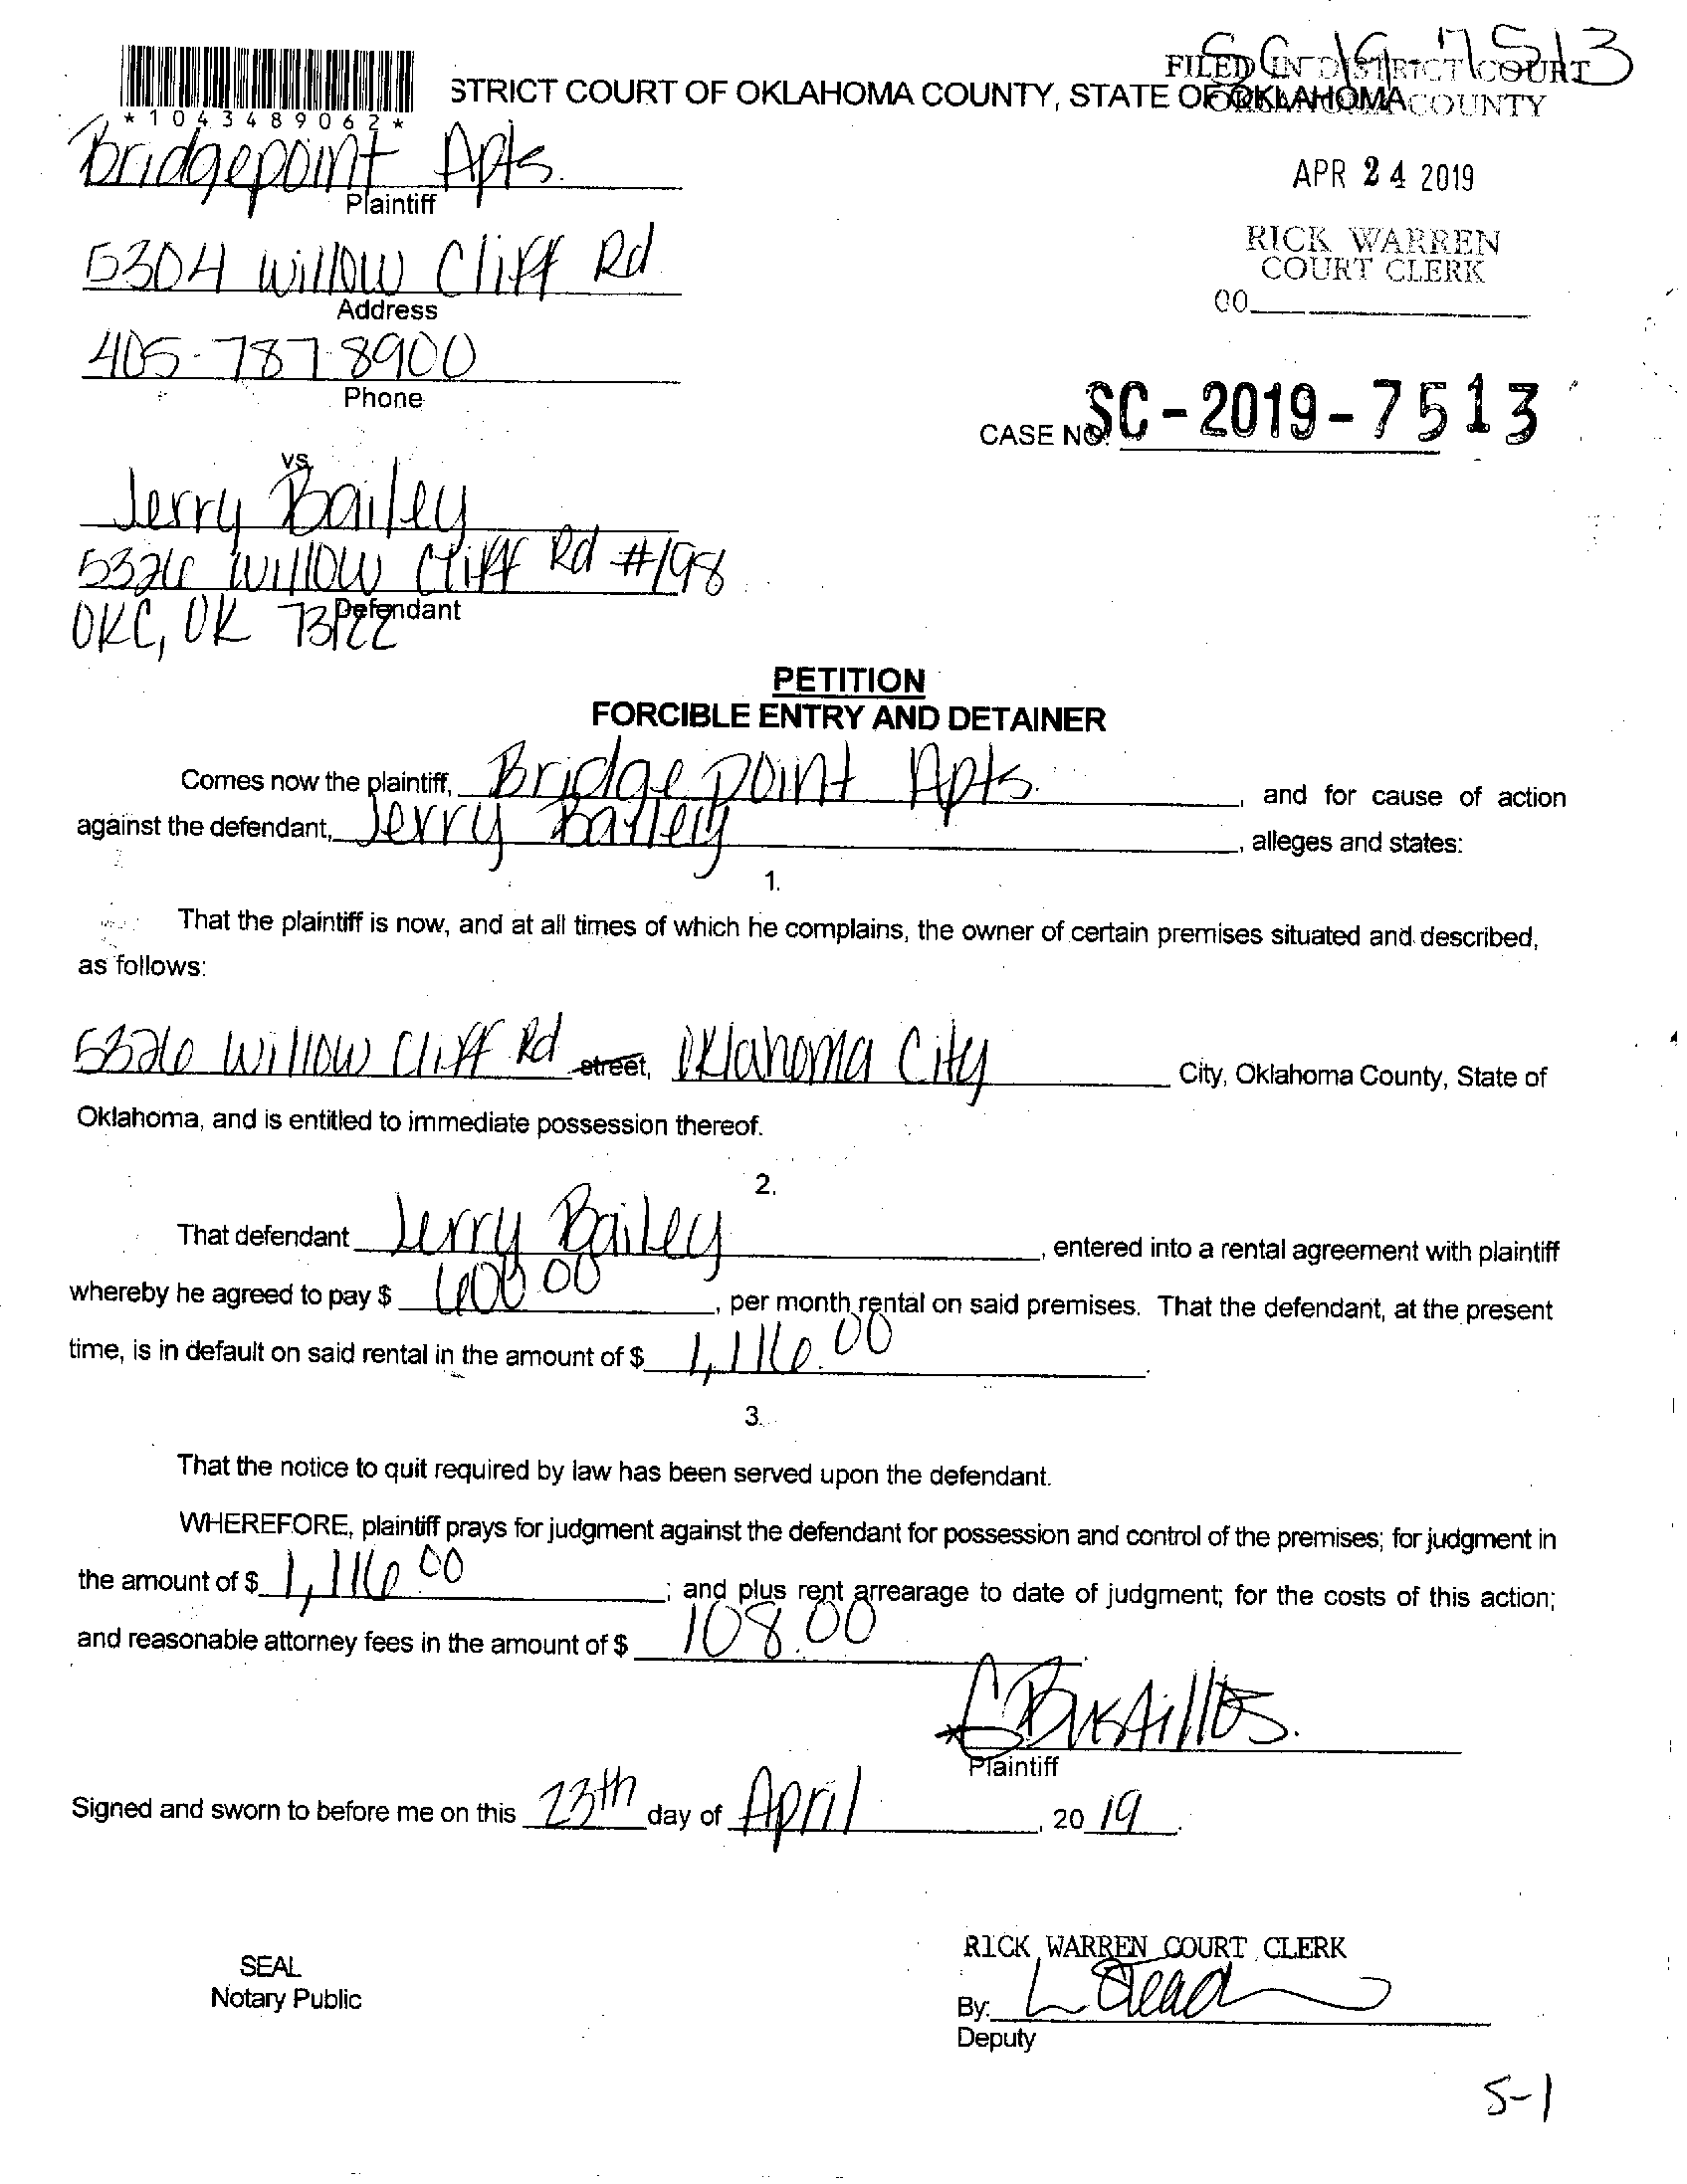 SC 19 7513
FILED IN DISTRICT COURT
OKLAHOMA COUNTY
STRICT COURT OF OKLAHOMA COUNTY, STATE OF OKLAHOMA
*1043489062*
Bridgepoint Apts.
Plaintiff
APR 24 2019
RICK WARREN
COURT CLERK
00
5304 Willow Cliff Rd
Address
405-787-8900
Phone
CASE NO. SC-2019-7513
vs.
Jerry Bailey
5326 Willow Cliff Rd #198
Defendant
OKC, OK 73122
PETITION
FORCIBLE ENTRY AND DETAINER
Comes now the plaintiff, Bridge point Apts. , and for cause of action
against the defendant, Jerry Bailey , alleges and states:
1.
That the plaintiff is now, and at all times of which he complains, the owner of certain premises situated and described,
as follows:
5326 Willow Cliff Rd street, Oklahoma City City, Oklahoma County, State of
Oklahoma, and is entitled to immediate possession thereof.
2.
That defendant Jerry Bailey , entered into a rental agreement with plaintiff
whereby he agreed to pay $ 600.00 , per month rental on said premises. That the defendant, at the present
time, is in default on said rental in the amount of $ 1,116.00 .
3.
That the notice to quit required by law has been served upon the defendant.
WHEREFORE, plaintiff prays for judgment against the defendant for possession and control of the premises; for judgment in
the amount of $ 1,116.00 ; and plus rent arrearage to date of judgment; for the costs of this action;
and reasonable attorney fees in the amount of $ 108.00 .
Plaintiff
Signed and sworn to before me on this 23th day of April , 20 19 .
RICK WARREN COURT CLERK
SEAL
Notary Public
By:
Deputy
5-1